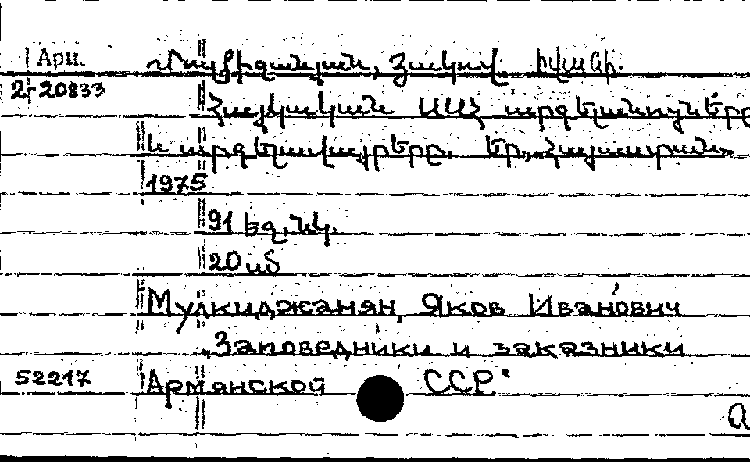 Арм. Մուլքիջանյան, Հակոբ Իվանի.
2-20833
Հայկական ՍՍՀ արգելանոցները
և արգելավայրերը. Եր., Հայաստան
1975
91 էջ, նկ.
20 սմ
Мулкиджанян, Яков Иванович
Заповедники и заказники
52217 Армянской ССР.